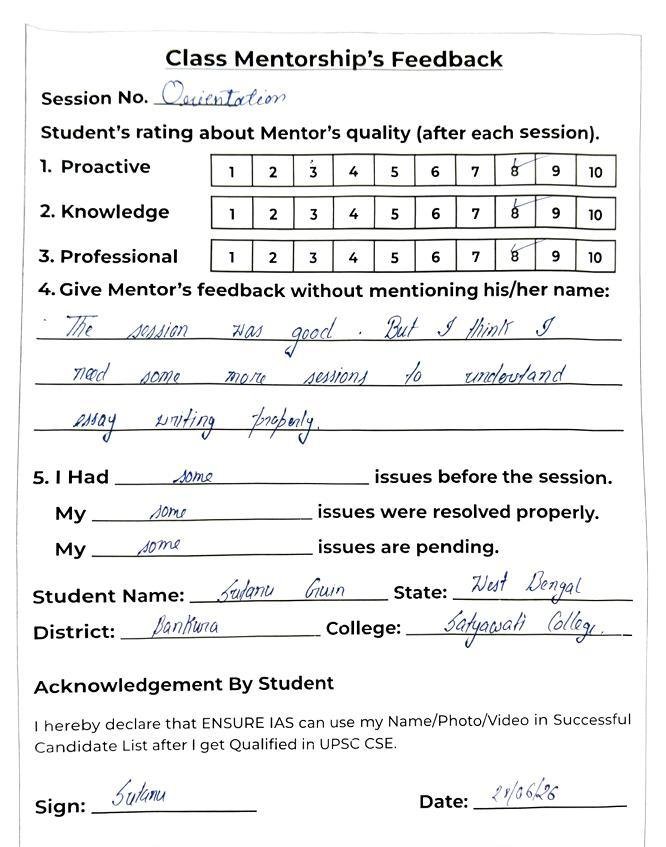 Class Mentorship's Feedback
Session No. Orientation
Student's rating about Mentor's quality (after each session).
1. Proactive 1 2 3 4 5 6 7 8 9 10
2. Knowledge 1 2 3 4 5 6 7 8 9 10
3. Professional 1 2 3 4 5 6 7 8 9 10
4. Give Mentor's feedback without mentioning his/her name:
The session was good. But I think I
need some more sessions to understand
essay writing properly.
5. I Had some issues before the session.
My some issues were resolved properly.
My some issues are pending.
Student Name: Sutanu Guin State: West Bengal
District: Bankura College: Satyawati College.
Acknowledgement By Student
I hereby declare that ENSURE IAS can use my Name/Photo/Video in Successful
Candidate List after I get Qualified in UPSC CSE.
Sign: Sutanu Date: /06/26